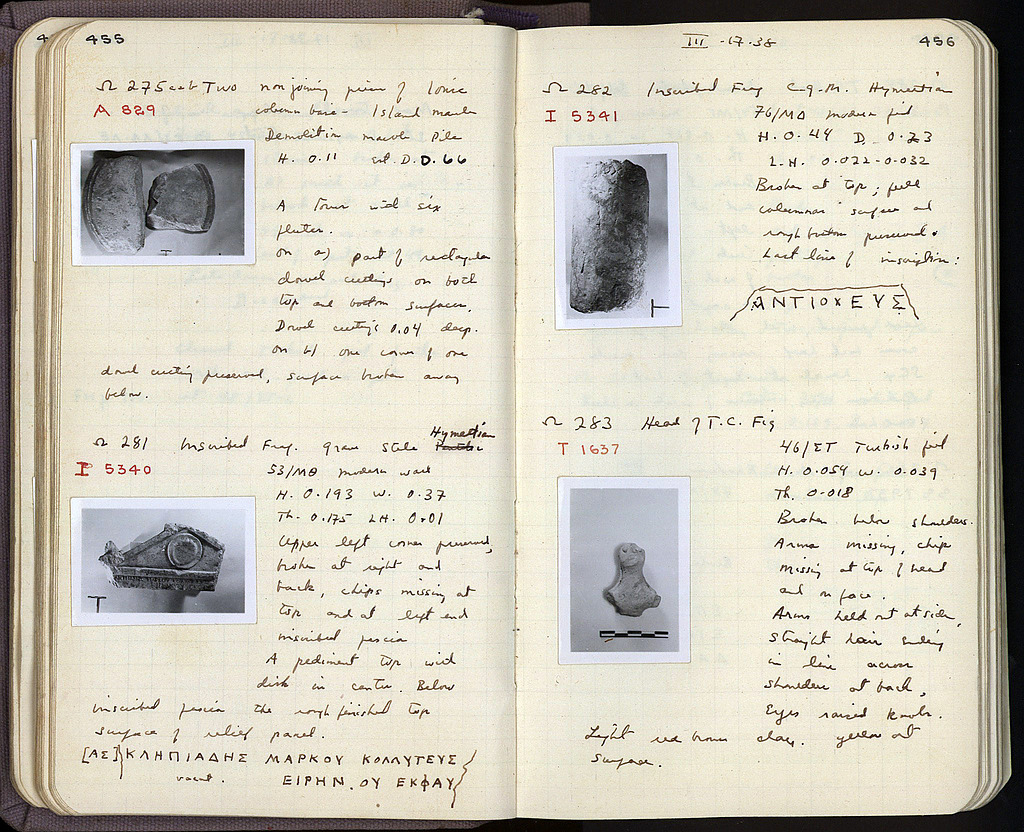 455
Ω 275 a+b Two non joining pieces of Ionic
A 829 column base - Island marble
Demolition marble Pile
H. 0.11 est. D. 0.66
A torus with six
flutes.
On a) part of rectangular
dowel cuttings on both
top and bottom surfaces.
Dowel cuttings 0.04 deep.
On b) one corner of one
dowel cutting preserved, surface broken away
below.
Ω 281 Inscribed Frag. grave stele Hymettian
I 5340 53/ΜΘ modern wall
H. 0.193 W. 0.37
Th. 0.175 LH. 0.01
Upper left corner preserved,
broken at right and
back, chips missing at
top and at left end
inscribed fascia
A pediment top with
disk in center. Below
inscribed fascia the rough finished top
surface of relief panel.
[ΑΣ]ΚΛΗΠΙΑΔΗΣ ΜΑΡΚΟΥ ΚΟΛΛΥΤΕΥΣ
vacat. ΕΙΡΗΝ.ΟΥ ΕΚΦΑΥ
III - 17 - 38
456
Ω 282 Inscribed Frag C-g-M. Hymettian
I 5341 76/ΜΔ modern fill
H. 0.44 D. 0.23
L.H. 0.022-0.032
Broken at top; full
columnar surface and
rough bottom preserved.
Last line of inscription:
ΑΝΤΙΟΧΕΥΣ
Ω 283 Head of T.C. Fig
T 1637 46/ΣΤ Turkish fill
H. 0.059 W. 0.039
Th. 0.018
Broken below shoulders.
Arms missing, chips
missing at top of head
and on face.
Arms held out at side,
straight hair ending
in line across
shoulders at back,
Eyes raised knobs.
Light red brown clay. yellow at
surface.